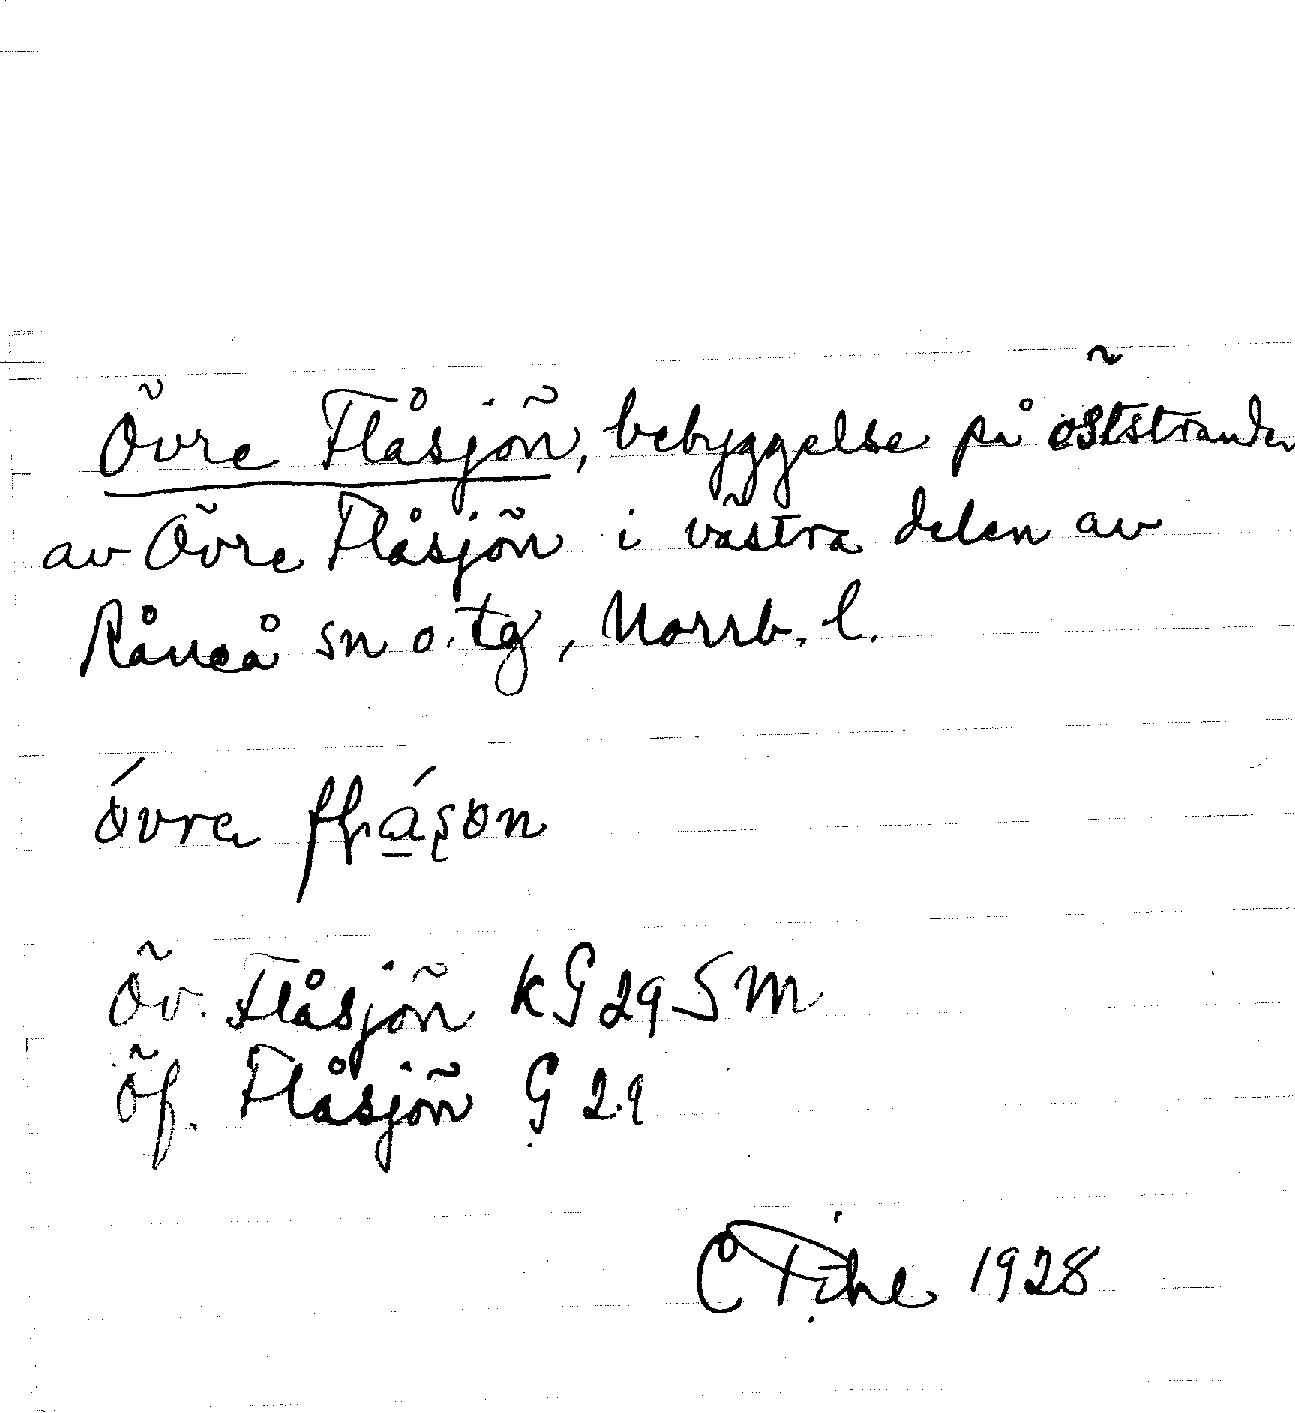 Övre Flåsjön, bebyggelse på öststranden
av Övre Flåsjön i västra delen av
Råneå sn o. tg, Norrb. l.
Öv. Flåsjön KG 29 SM
Öf. Flåsjön G 29
1928